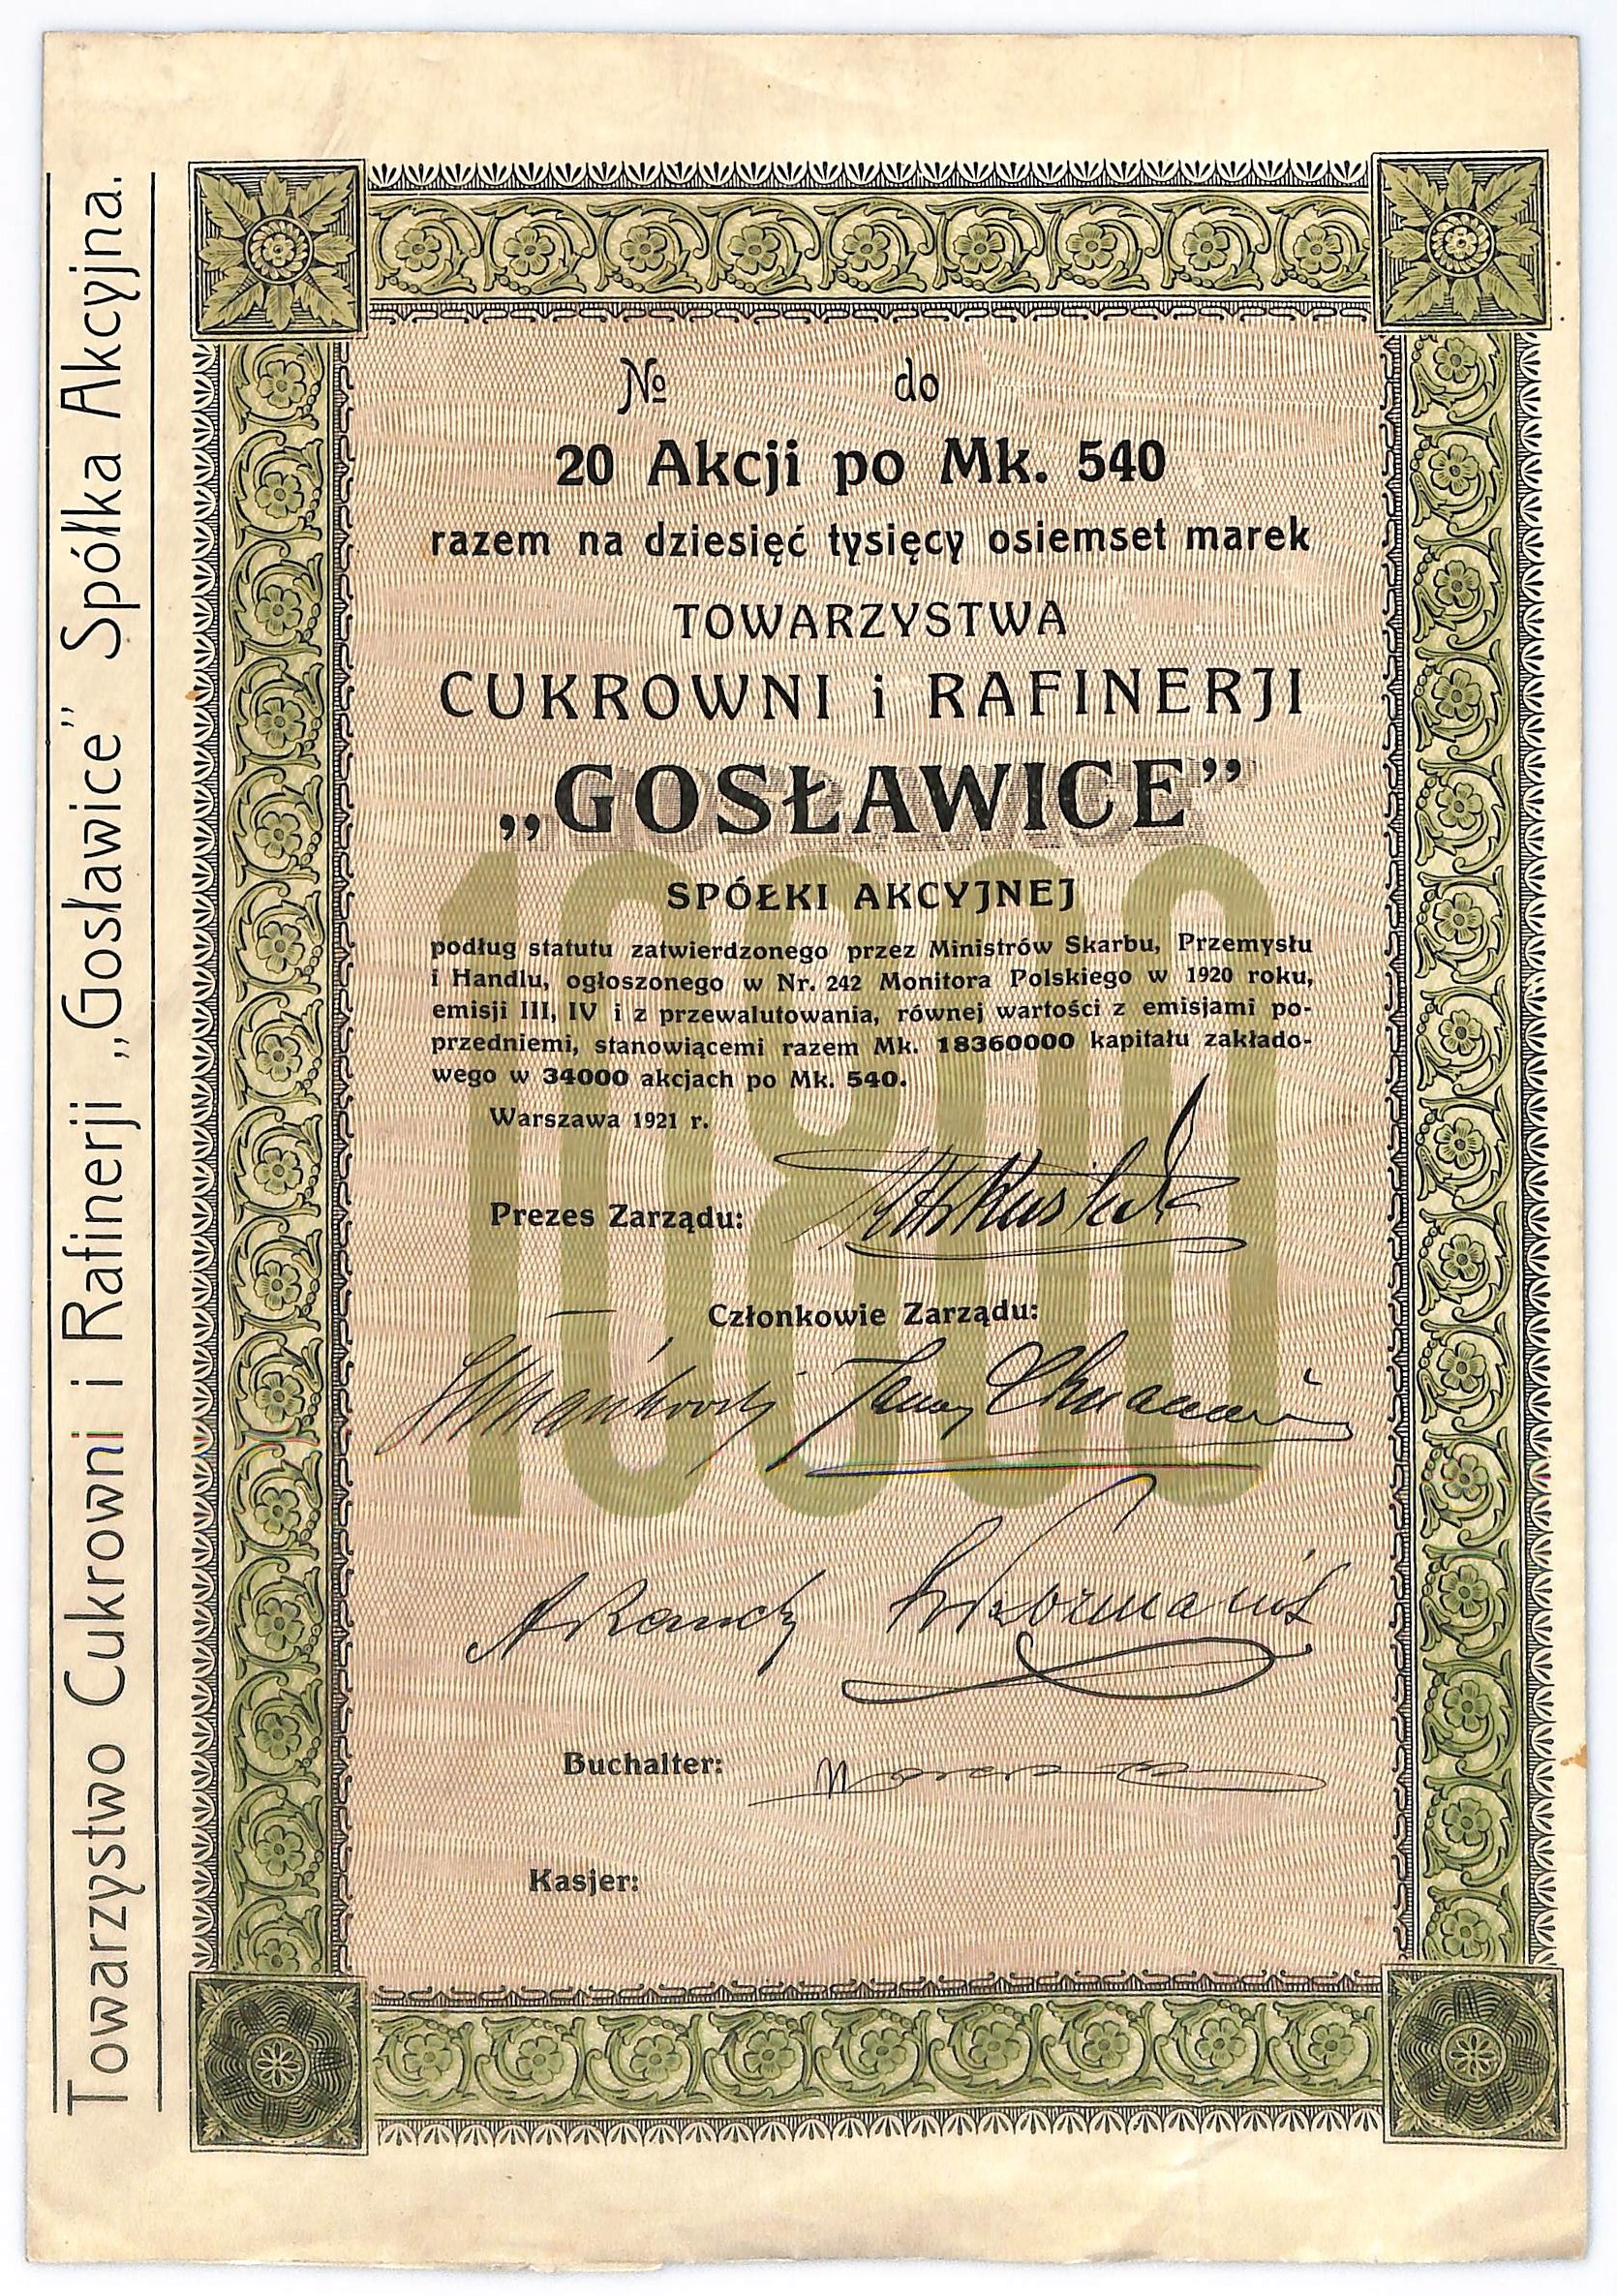 Towarzystwo Cukrowni i Rafinerji „Gosławice” Spółka Akcyjna.
№ do
20 Akcji po Mk. 540
razem na dziesięć tysięcy osiemset marek
TOWARZYSTWA
CUKROWNI i RAFINERJI
„GOSŁAWICE”
10800
SPÓŁKI AKCYJNEJ
podług statutu zatwierdzonego przez Ministrów Skarbu, Przemysłu
i Handlu, ogłoszonego w Nr. 242 Monitora Polskiego w 1920 roku,
emisji III, IV i z przewalutowania, równej wartości z emisjami po-
przedniemi, stanowiącemi razem Mk. 18360000 kapitału zakłado-
wego w 34000 akcjach po Mk. 540.
Warszawa 1921 r.
Prezes Zarządu:
Członkowie Zarządu:
Buchalter:
Kasjer: